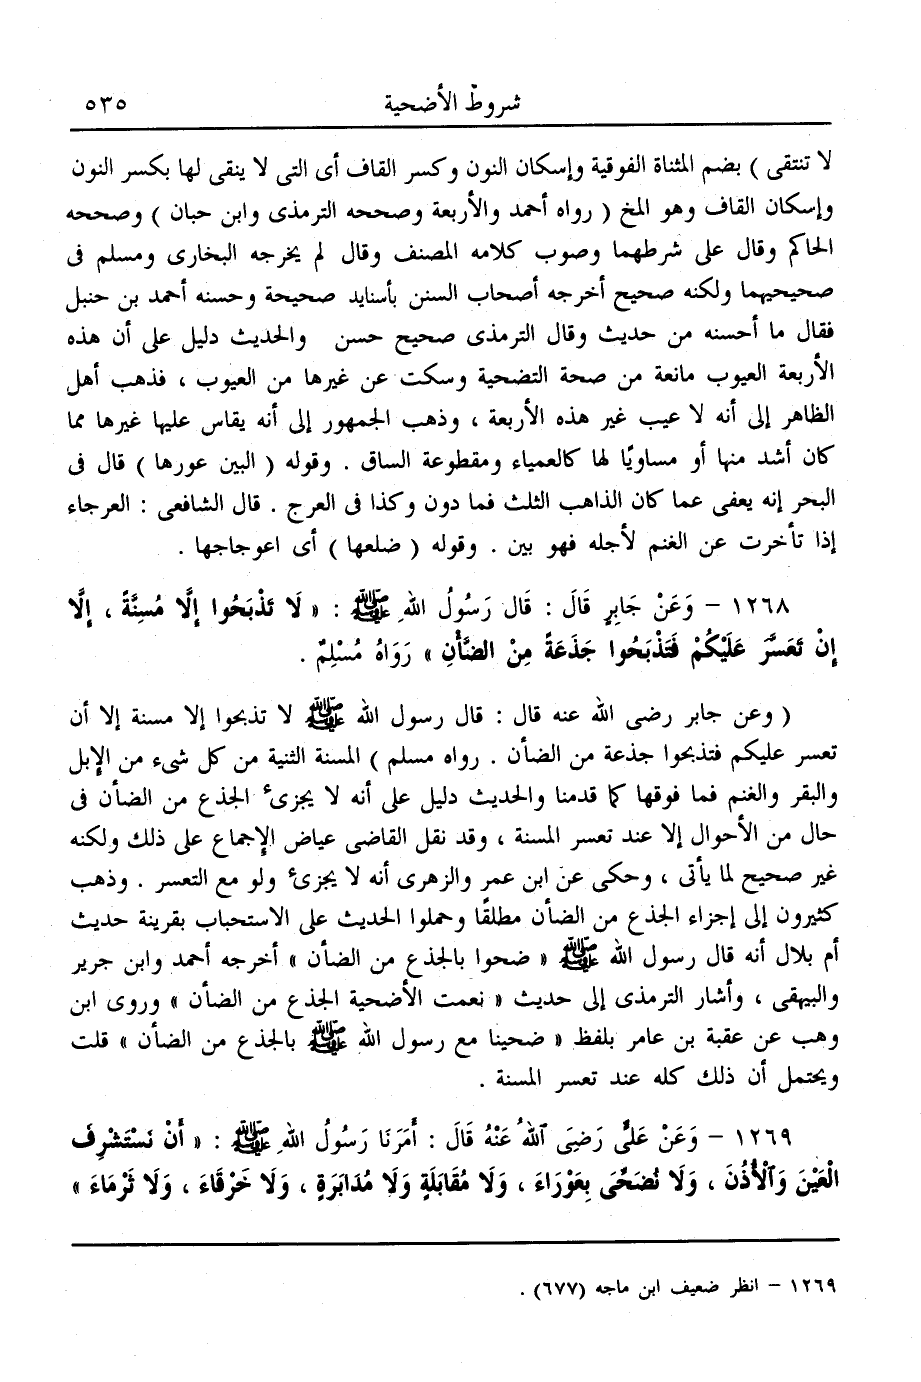 شروط الأضحية ٥٣٥
لا تنتقى ) بضم المثناة الفوقية وإسكان النون وكسر القاف أى التى لا ينقى لها بكسر النون
وإسكان القاف وهو المخ ( رواه أحمد والأربعة وصححه الترمذى وابن حبان ) وصححه
الحاكم وقال على شرطهما وصوب كلامه المصنف وقال لم يخرجه البخارى ومسلم فى
صحيحيهما ولكنه صحيح أخرجه أصحاب السنن بأسنايد صحيحة وحسنه أحمد بن حنبل
فقال ما أحسنه من حديث وقال الترمذى صحيح حسن والحديث دليل على أن هذه
الأربعة العيوب مانعة من صحة التضحية وسكت عن غيرها من العيوب ، فذهب أهل
الظاهر إلى أنه لا عيب غير هذه الأربعة ، وذهب الجمهور إلى أنه يقاس عليها غيرها مما
كان أشد منها أو مساويًا لها كالعمياء ومقطوعة الساق . وقوله ( البين عورها ) قال فى
البحر إنه يعفى عما كان الذاهب الثلث فما دون وكذا فى العرج . قال الشافعى : العرجاء
إذا تأخرت عن الغنم لأجله فهو بين . وقوله ( ضلعها ) أى اعوجاجها .
١٢٦٨ – وَعَنْ جَابِرٍ قَالَ : قَال رَسُولُ اللهِ ﷺ : « لَا تَذْبَحُوا إلَّا مُسِنَّةً ، إلَّا
إنْ تَعَسَّرَ عَلَيْكُمْ فَتَذْبَحُوا جَذَعَةً مِنْ الضَّأْنِ » رَوَاهُ مُسْلِمٌ .
( وعن جابر رضى الله عنه قال : قال رسول الله ﷺ لا تذبحوا إلا مسنة إلا أن
تعسر عليكم فتذبحوا جذعة من الضأن . رواه مسلم ) المسنة الثنية من كل شىء من الإبل
والبقر والغنم فما فوقها كما قدمنا والحديث دليل على أنه لا يجزىء الجذع من الضأن فى
حال من الأحوال إلا عند تعسر المسنة ، وقد نقل القاضى عياض الإجماع على ذلك ولكنه
غير صحيح لما يأتى ، وحكى عن ابن عمر والزهرى أنه لا يجزىء ولو مع التعسر . وذهب
كثيرون إلى إجزاء الجذع من الضأن مطلقًا وحملوا الحديث على الاستحباب بقرينة حديث
أم بلال أنه قال رسول الله ﷺ « ضحوا بالجذع من الضأن » أخرجه أحمد وابن جرير
والبيهقى ، وأشار الترمذى إلى حديث « نعمت الأضحية الجذع من الضأن » وروى ابن
وهب عن عقبة بن عامر بلفظ « ضحينا مع رسول الله ﷺ بالجذع من الضأن » قلت
ويحتمل أن ذلك كله عند تعسر المسنة .
١٢٦٩ – وَعَنْ عَلىٍّ رَضِىَ اللهُ عَنْهُ قَالَ : أَمَرَنَا رَسُولُ اللهِ ﷺ : « أَنْ نَسْتَشْرِفَ
الْعَيْنَ وَالْأُذُنَ ، وَلَا نُضَحِّىَ بِعَوْرَاءَ ، وَلَا مُقَابَلَةٍ وَلَا مُدَابَرَةٍ ، وَلَا خَرْقَاءَ ، وَلَا ثَرْمَاءَ »
١٢٦٩ – انظر ضعيف ابن ماجه (٦٧٧) .